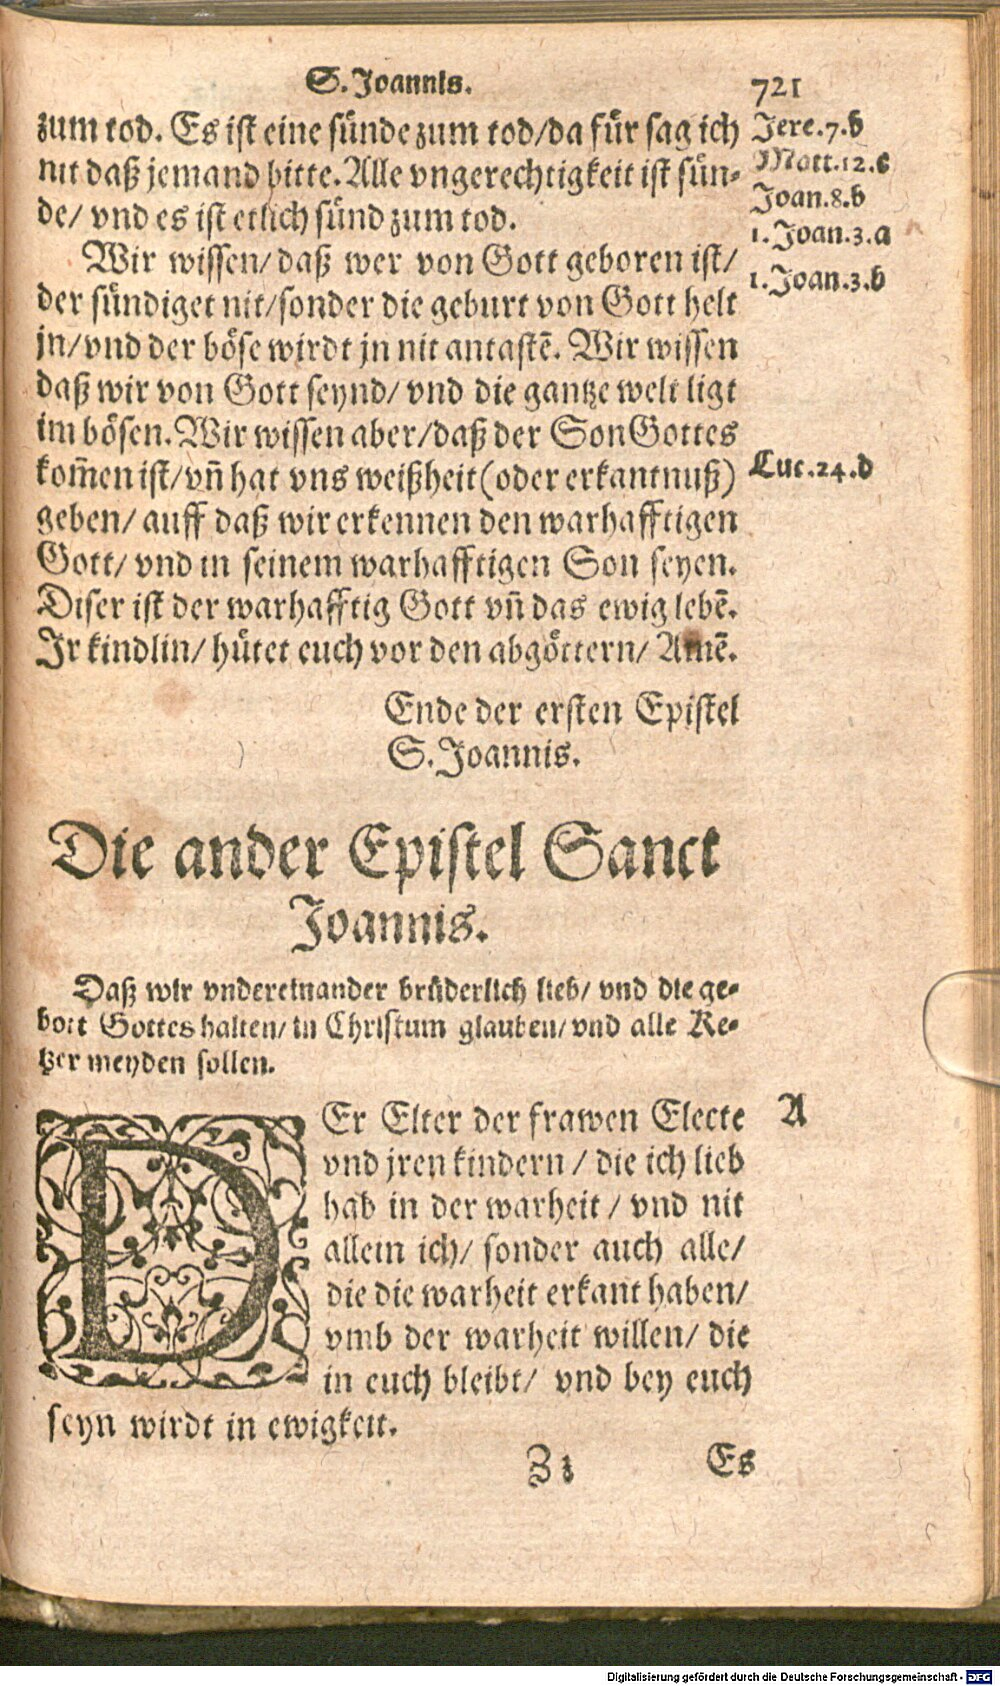 S. Joannis.
721
zum tod. Es ist eine sünde zum tod/da für sag ich
nit daß jemand bitte. Alle vngerechtigkeit ist sün-
de/ vnd es ist etlich sünd zum tod.
Wir wissen/ daß wer von Gott geboren ist/
der sündiget nit/sonder die geburt von Gott helt
jn/vnd der böse wirdt jn nit antastē. Wir wissen
daß wir von Gott seynd/ vnd die gantze welt ligt
im bösen. Wir wissen aber/daß der Son Gottes
kom̄en ist/vn̄ hat vns weißheit (oder erkantnuß)
geben/ auff daß wir erkennen den warhafftigen
Gott/ vnd in seinem warhafftigen Son seyen.
Diser ist der warhafftig Gott vn̄ das ewig lebē.
Ir kindlin/ hütet euch vor den abgöttern/ Amē.
Jere.7.b
Matt.12.c
Joan.8.b
1.Joan.3.a
1.Joan.3.b
Luc.24.d
Ende der ersten Epistel
S. Joannis.
Die ander Epistel Sanct
Joannis.
Daß wir vndereinander brüderlich lieb/ vnd die ge-
bott Gottes halten/ in Christum glauben/ vnd alle Ke-
tzer meyden sollen.
DEr Elter der frawen Electe
vnd jren kindern / die ich lieb
hab in der warheit / vnd nit
allein ich/ sonder auch alle/
die die warheit erkant haben/
vmb der warheit willen/ die
in euch bleibt/ vnd bey euch
seyn wirdt in ewigkeit.
A
Zz
Es
Digitalisierung gefördert durch die Deutsche Forschungsgemeinschaft - DFG